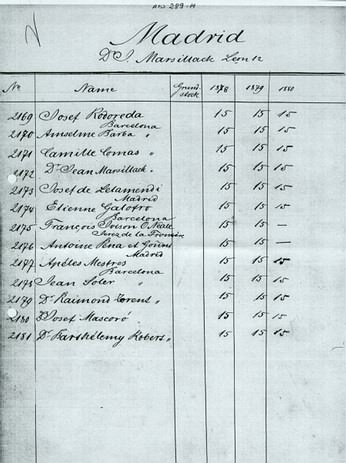 Madrid
Dr J. Marsillach Leon 12
No. Name Grund- stock 1878 1879 1880
2169 Josef Rodoreda 15 15 15
Barcelona
2170 Anselme Barba " 15 15 15
2171 Camille Comas " 15 15 15
2172 Dr Jean Marsillach " 15 15 15
2173 Josef de Letamendi 15 15 15
Madrid
2174 Etienne 15 15 15
Barcelona
2175 François O'Neale 15 15 —
Jerez de la Frontera
2176 Antoine Pena et Goñi 15 15 —
Madrid
2177 Apeles Mestres 15 15 15
Barcelona
2178 Jean Soler " 15 15 15
2179 Dr Raimond Torent " 15 15 15
2180 Josef Mascaró " 15 15 15
2181 Dr Barthélemy Robert " 15 15 15